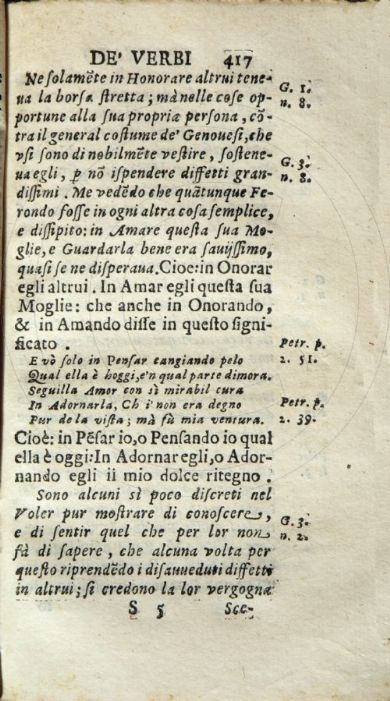 DE' VERBI 417
Ne solamẽte in Honorare altrui tene-
ua la borsa stretta; mà nelle cose op- G. 1.
portune alla sua propria persona, cõ- n. 8.
tra il general costume de' Genouesi, che
vsi sono di nobilmẽte vestire, sostene-
ua egli, ꝑ nõ ispendere diffetti gran- G. 3.
dissimi. Me vedẽdo che quãtunque Fe- n. 8.
rondo fosse in ogni altra cosa semplice,
e dissipito: in Amare questa sua Mo-
glie, e Guardarla bene era sauijssimo,
quasi se ne disperaua. Cioe: in Onorar
egli altrui. In Amar egli questa sua
Moglie: che anche in Onorando,
& in Amando disse in questo signi-
ficato. Petr. p.
E vò solo in Pensar cangiando pelo 2. 51.
Qual ella è hoggi, e'n qual parte dimora.
Seguilla Amor con sì mirabil cura
In Adornarla, Ch i'non era degno Petr. p.
Pur de la vista; mà fù mia ventura. 2. 39.
Cioè: in Pẽsar io, o Pensando io qual
ella è oggi: In Adornar egli, o Ador-
nando egli il mio dolce ritegno.
Sono alcuni sì poco discreti nel
Voler pur mostrare di conoscere, G. 3.
e di sentir quel che per lor non n. 2.
fà di sapere, che alcuna volta per
questo riprendẽdo i disaueduti diffetti
in altrui; si credono la lor vergogna
S 5 Sce-